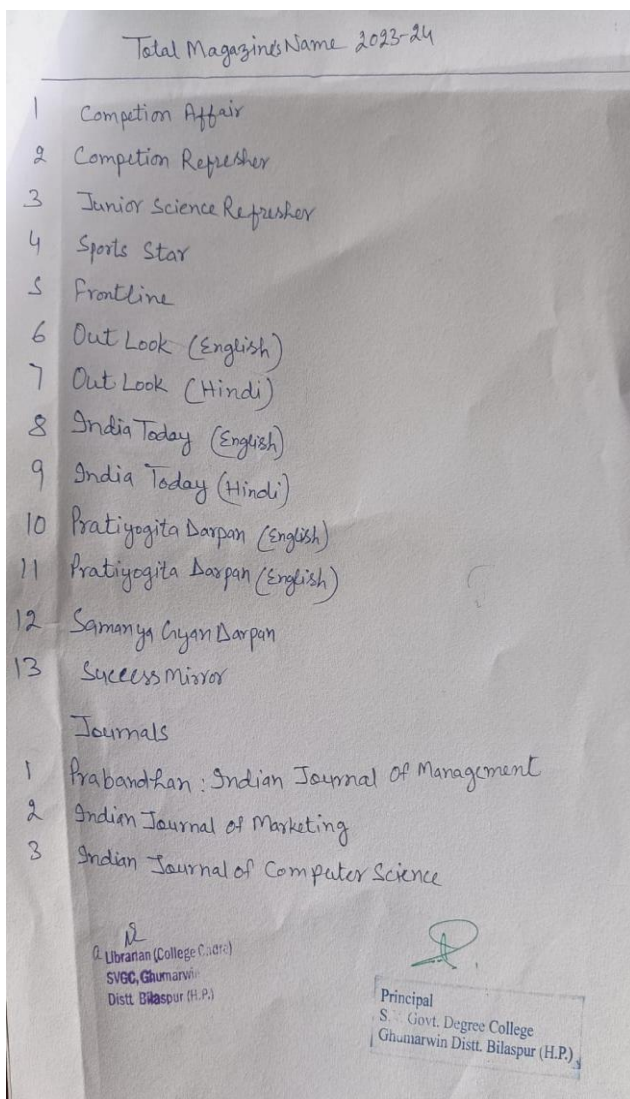 Total Magazines Name 2023-24
1 Compction Affair
2 Compction Refresher
3 Junior Science Refresher
4 Sports Star
5 Frontline
6 Out Look (English)
7 Out Look (Hindi)
8 India Today (English)
9 India Today (Hindi)
10 Pratiyogita Darpan (English)
11 Pratiyogita Darpan (English)
12 Samanya Gyan Darpan
13 Success Mirror
Journals
1 Prabandhan : Indian Journal of Management
2 Indian Journal of Marketing
3 Indian Journal of Computer Science
Librarian (College Cadre)
SVGC, Ghumarwin
Distt. Bilaspur (H.P.)
Principal
S. Govt. Degree College
Ghumarwin Distt. Bilaspur (H.P.)